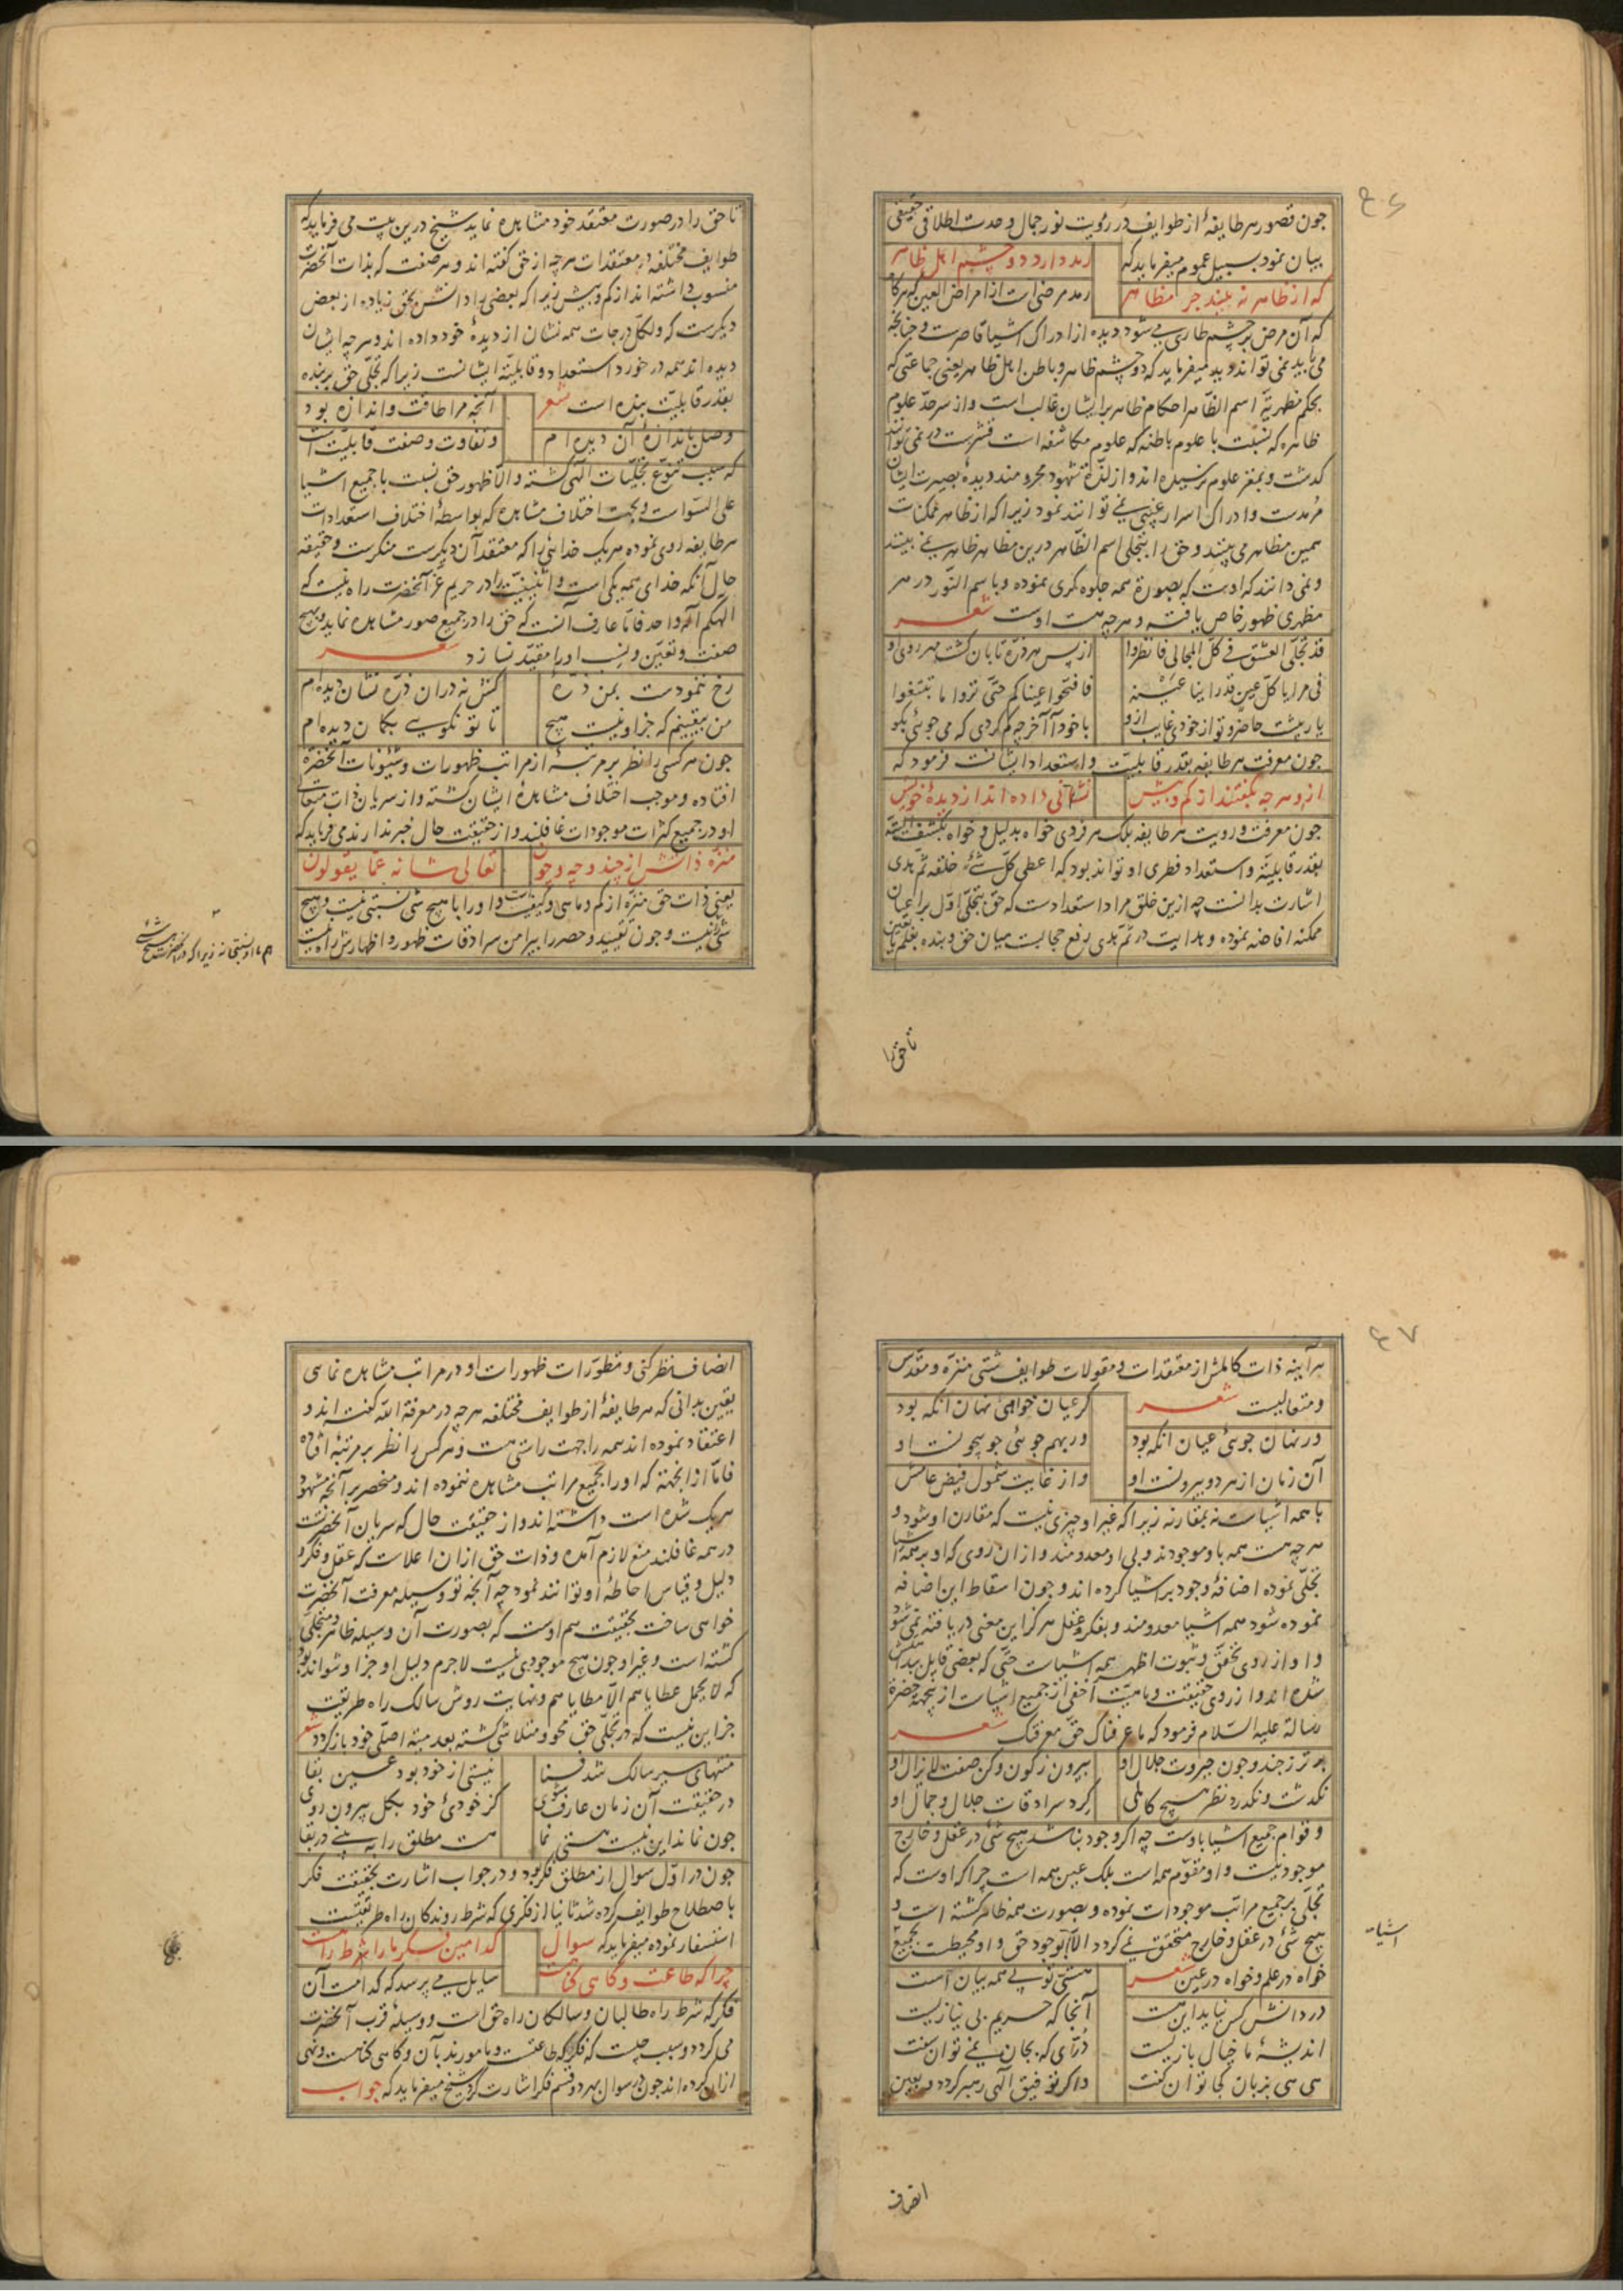 ۴۶
چون قصور هر طایفهٔ از طوایف در رؤیت نور جمال وحدت اطلاقی حقیقی
بیان نمود بسبیل عموم میفرماید که رمد دارد دو چشم اهل ظاهر
که از ظاهر نه بیند جز مظاهر رمد مرضی است از امراض العین که هرگاه
که آن مرض بر چشم طاری می شود دیده از ادراک اشیا قاصرست و چنانچه
می باید نمی تواند دید میفرماید که دو چشم ظاهر و باطن اهل ظاهر یعنی جماعتی که
بحکم مظهریّة اسم الظّاهر احکام ظاهر بر ایشان غالب است و از سرحدّ علوم
ظاهره که نسبت با علوم باطنه که علوم مکاشفه است قشرست در نمی توانند
گذشت و بمغز علوم نرسیده اند و از لذّة شهود محروم‌ند دیدهٔ بصیرت ایشان
رمدست و ادراک اسرار غیبی نمی توانند نمود زیرا که از ظاهر ممکنات
همین مظاهر می بینند و حق را بتجلی اسم الظّاهر درین مظاهر ظاهر نمی بینند
و نمی دانند که اوست که بصورة همه جلوه گری نموده و باسم النّور در هر
مظهری ظهور خاص یافته و هرچه هست اوست شعر
قد تجلّی العشق فی کلّ المجالی فانظروا از پس هر ذرّه تابان گشت مهر روی او
فی مرایا کلّ عین قد راینا عینه فافتحوا عیناکم حتّی تروا ما تبتغوا
یار پیشت حاضر و تو از خودی غایب ازو با خود آ آخر چه گم کردی که می جوئی بگو
چون معرفت هر طایفه بقدر قابلیّت و استعداد ایشانست فرمود که
ازو هرچه بگفتند از کم و بیش نشانی داده اند از دیدهٔ خویش
چون معرفت و رویت هر طایفه بلک هر فردی خواه بدلیل و خواه بکشف البتّه
بقدر قابلیّة و استعداد فطری او تواند بود که اعطی کلّ شئ خلقه ثمّ هدی
اشارت بدانست چه ازین خلق مراد استعدادست که حق بتجلّی اوّل بر اعیان
ممکنه افاضه نموده و هدایت در ثمّ هدی رفع حجابست میان حق و بنده بعلم یا تعیّن
تا حق را
تا حق را در صورت معتقد خود مشاهده نماید شیخ درین بیت می فرماید که
طوایف مختلفه در معتقدات هرچه از حق گفته اند و هر صفت که بذات آنحضرت
منسوب داشته اند از کم و بیش زیرا که بعضی را دانش بحق زیاده از بعض
دیگرست که ولکلّ درجات همه نشان از دیدهٔ خود داده اند و هرچه ایشان
دیده اند همه در خورد استعداد و قابلیّة ایشانست زیرا که تجلّی حق بر بنده
بقدر قابلیّت بنده است شعر آنچه مرا طاقت و اندازه بود
وصل باندازهٔ آن دیده ام و تفاوت وصفت قابلیّت است
که سبب تنوّع تجلّیات الهی گشته والّا ظهور حق نسبت با جمیع اشیا
علی السّواست و بجهت اختلاف مشاهده که بواسطهٔ اختلاف استعدادات
هر طایفه روی نموده هر یک خدائی را که معتقد آن دیگرست منکرست و حقیقة
حال آنکه خدای همه یکی است و اثنینیّت را در حریم عزّ آنحضرت راه نیست که
الهکم اله واحد فامّا عارف آنست که حق را در جمیع صور مشاهده نماید و بهیچ
صفت و تعیّن و نسب او را مقیّد نسازد شعر
رخ ننمودست بمن ذرّه کش نه در ان ذرّه نشان دیده ام
من بیقینم که جز او نیست هیچ تا تو نگویی بگمان دیده ام
چون هر کسی را نظر بر مرتبهٔ از مراتب ظهورات و شئونات آنحضرة
افتاده و موجب اختلاف مشاهدهٔ ایشان گشته و از سریان ذات متعالی
او در جمیع کثرات موجودات غافلند و از حقیقت حال خبر ندارند می فرماید که
منزّه ذاتش از چند و چه و چون تعالی شانه عمّا یقولون
یعنی ذات حق منزّه از کم و ماهی و کیفیّت است و او را با هیچ شی نسبتی نیست و هیچ
شی نیست و چون تقیید و حصر را پیرامن سرادقات ظهور و اظهارش راه نیست
۴۷
هر آینه ذات کاملش از معتقدات و مقولات طوایف شتی منزّه و مقدّس
و متعالیست شعر گر عیان خواهی نهان آنکه بود
در نهان جوئی عیان آنکه بود ور بهم جوئی جو بیچونست او
آن زمان از هر دو بیرونست او و از غایت شمول فیض عامش
با همه اشیاست نه بمقارنه زیرا که غیر او چیزی نیست که مقارن او شود و
هرچه هست همه باو موجودند و بی او معدومند و از ان روی که او بر همه اشیا
تجلّی نموده اضافهٔ وجود بر اشیا کرده اند و چون اسقاط این اضافه
نموده شود همه اشیا معدومند و بفکر و عقل هرگز این معنی دریافته نمی شود
و او از روی تحقّق و ثبوت اظهر همه اشیاست حتّی که بعضی قایل ببداهتش
شده اند و از روی حقیقت و ماهیّت اخفی از جمیع اشیاست ازینجهة حضرة
رسالة علیه السّلام فرمود که ما عرفناک حقّ معرفتک شعر
برتر ز چند و چون جبروت جلال او بیرون ز کون و کن صفت لایزال او
نگذشت و نگذرد نظر هیچ کاملی گرد سرادقات جلال و جمال او
و قوام جمیع اشیا باوست چه اگر وجود نباشد هیچ شی در عقل و خارج
موجود نیست و او مقوّم همه است بلک عین همه است چرا که اوست که
تجلّی بر جمیع مراتب موجودات نموده و بصورت همه ظاهر گشته است و
هیچ شی در عقل و خارج متحقّق نمی گردد الّا بوجود حق و او محیطست بجمیع
اشیا
خواه در علم و خواه در عین شعر هستی تو بی همه بیان است
در دانش کس نیاید این هست آنجا که حریم بی نیازیست
اندیشهٔ ما خیال بازیست درّی که بجان نمی توان سفت
هی هی بزبان کجا توان گفت و اگر توفیق الهی رهبر گردد و بعین
انصاف
انصاف نظر کنی و تطوّرات ظهورات او در مراتب مشاهده نمائی
یقین بدانی که هر طایفهٔ از طوایف مختلفه هرچه در معرفة اللّه گفته اند و
اعتقاد نموده اند همه را جهت راستی هست و هر کس را نظر بر مرتبهٔ افتاده
فامّا از انجهة که او را بجمیع مراتب مشاهده ننموده اند و منحصر بر آنچه مشهود
هر یک شده است داشته اند و از حقیقت حال که سریان آنحضرتست
در همه غافلند منع لازم آمده و ذات حق ازان اعلاست که عقل و فکر و
دلیل و قیاس احاطهٔ او توانند نمود چه آنچه تو وسیله معرفت آنحضرت
خواهی ساخت بحقیقت هم اوست که بصورت آن وسیله ظاهر و متجلّی
گشته است و غیر او چون هیچ موجودی نیست لاجرم دلیل او جز او نتواند بود
که لا یحمل عطایاهم الّا مطایاهم و نهایت روش سالک راه طریقت
جز این نیست که در تجلّی حق محو و متلاشی گشته بعدمیّة اصلی خود باز گردد شعر
منتهای سیر سالک شد فنا نیستی از خود بود عین بقا
در حقیقت آن زمان عارف شوی کز خودئ خود بکل بیرون روی
چون نماند این نیست هستی نما هست مطلق را ببینی در بقا
چون در اوّل سوال از مطلق فکر بود و در جواب اشارت بحقیقت فکر
باصطلاح طوایف کرده شد ثانیا از فکری که شرط روندگان راه طریقتست
استفسار نموده میفرماید که سوال کدامین فکر ما را شرط راهست
چرا گه طاعت و گاهی گناهست سایل می پرسد که کدامست آن
فکر که شرط راه طالبان و سالکان راه حق است و وسیلهٔ قرب آنحضرت
می گردد و سبب چیست که فکر گه طاعتست و مامورند بآن و گاهی گناهست و نهی
ازان کرده اند چون در سوال بهر دو قسم فکر اشارت کرد شیخ میفرماید که جواب